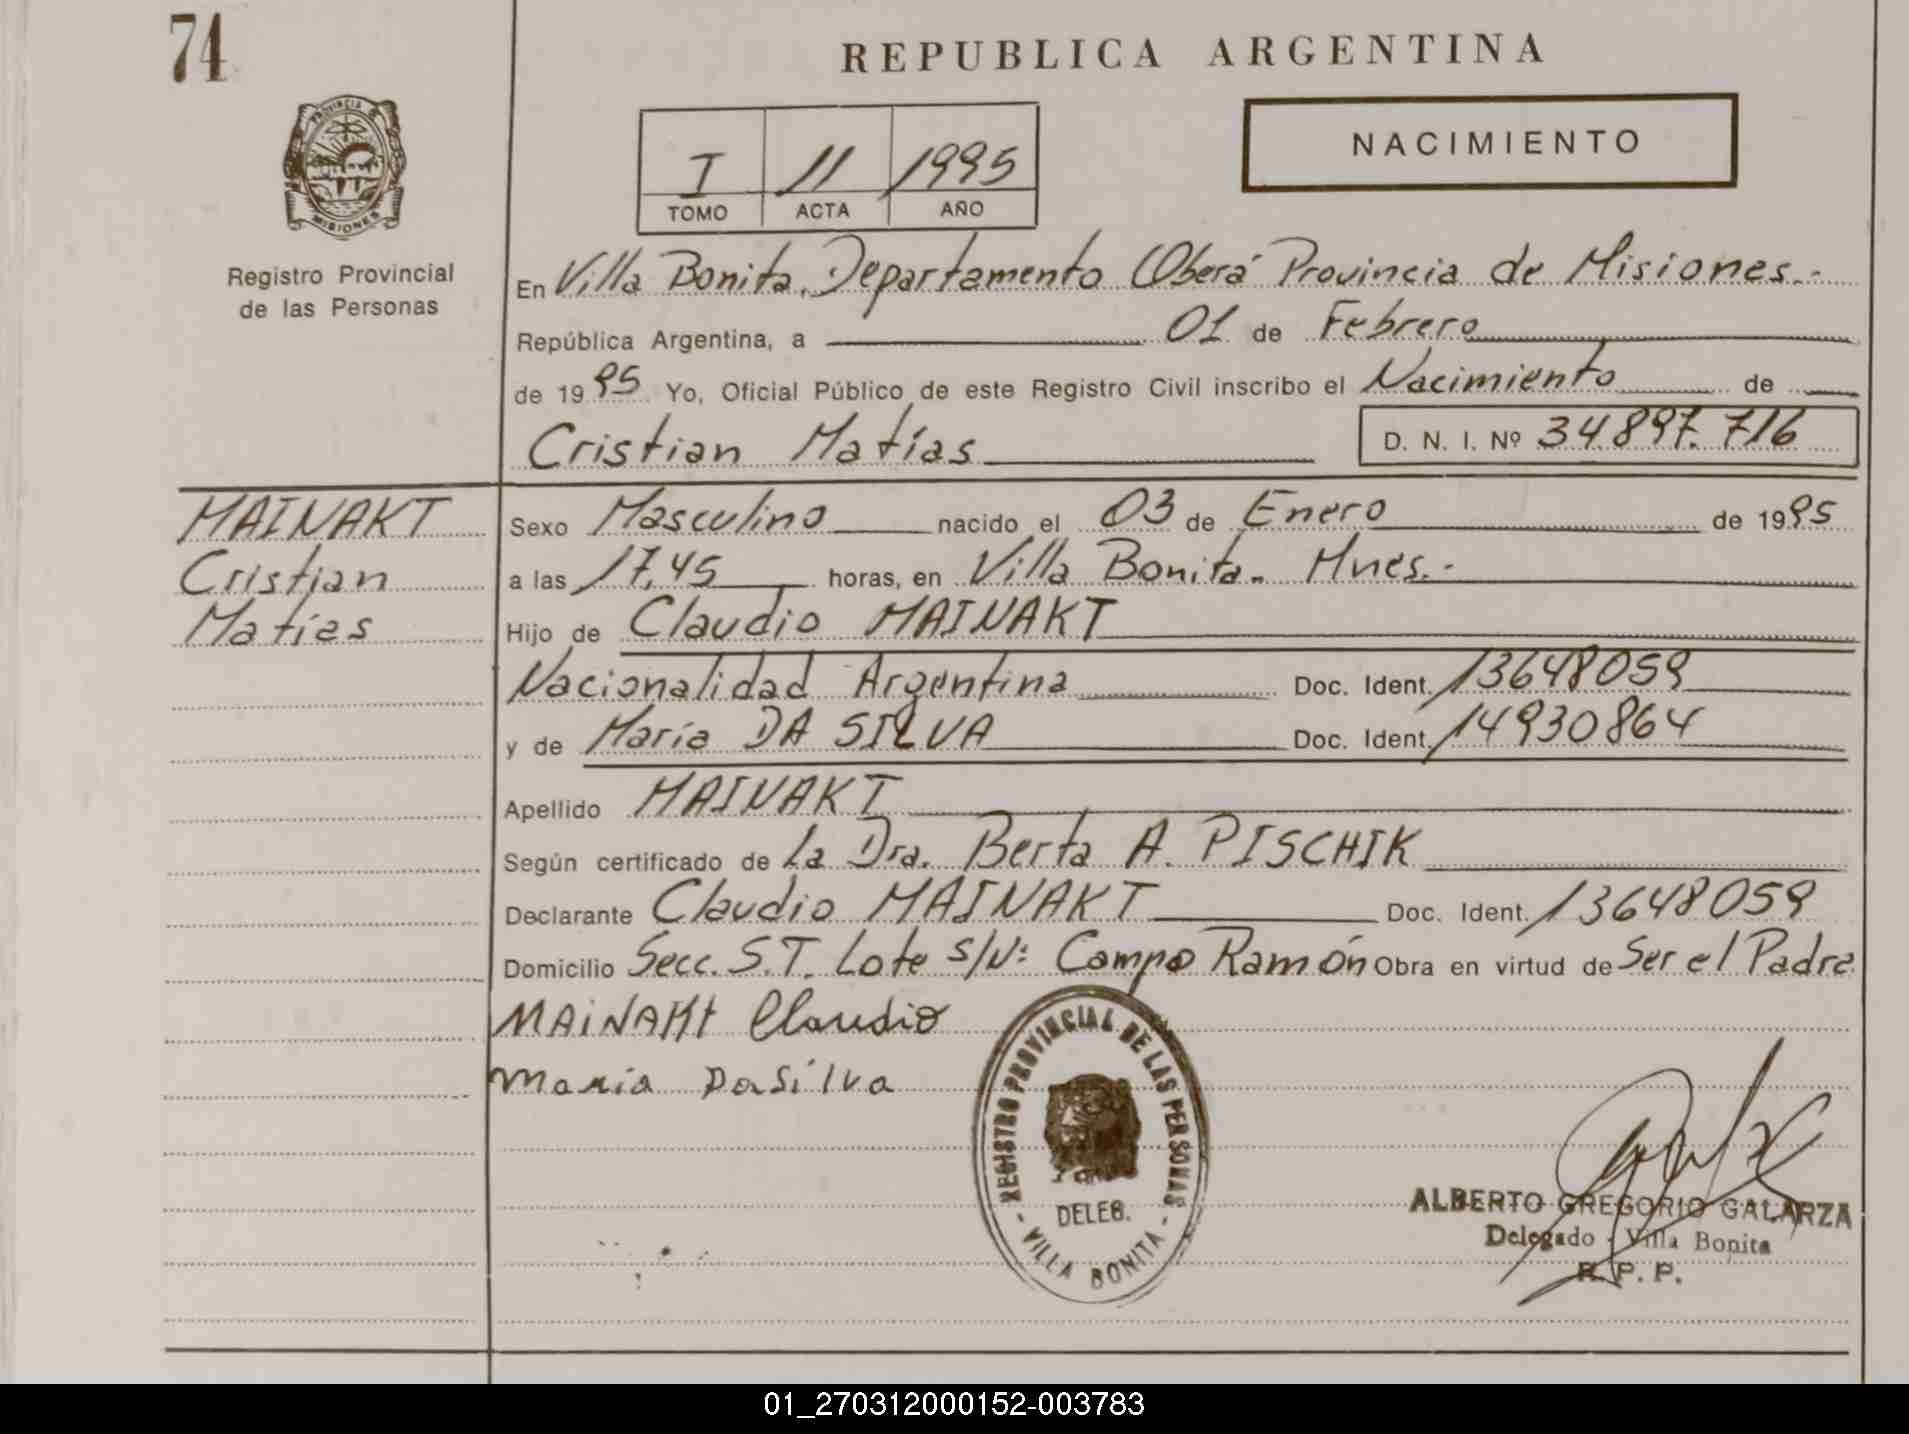 74
REPUBLICA ARGENTINA
PROVINCIA DE
MISIONES
NACIMIENTO
I 11 1995
TOMO ACTA AÑO
Registro Provincial
de las Personas
En Villa Bonita, Departamento Oberá Provincia de Misiones.-
República Argentina, a 01 de Febrero
de 1995 Yo, Oficial Público de este Registro Civil inscribo el Nacimiento de
Cristian Matías D. N. I. Nº 34.897.716
MAINAKT
Cristian
Matías
Sexo Masculino nacido el 03 de Enero de 1995
a las 17,45 horas, en Villa Bonita. Mnes.-
Hijo de Claudio MAINAKT
Nacionalidad Argentina Doc. Ident. 13648059
y de María DA SILVA Doc. Ident. 14930864
Apellido MAINAKT
Según certificado de La Dra. Berta A. PISCHIK
Declarante Claudio MAINAKT Doc. Ident. 13648059
Domicilio Secc. S.T. Lote s/Nº Campo Ramón Obra en virtud de Ser el Padre
MAiNAKt Claudio
maria DaSilva
REGISTRO PROVINCIAL DE LAS PERSONAS
DELEG.
- VILLA BONITA -
ALBERTO GREGORIO GALARZA
Delegado - Villa Bonita
R. P. P.
01_270312000152-003783